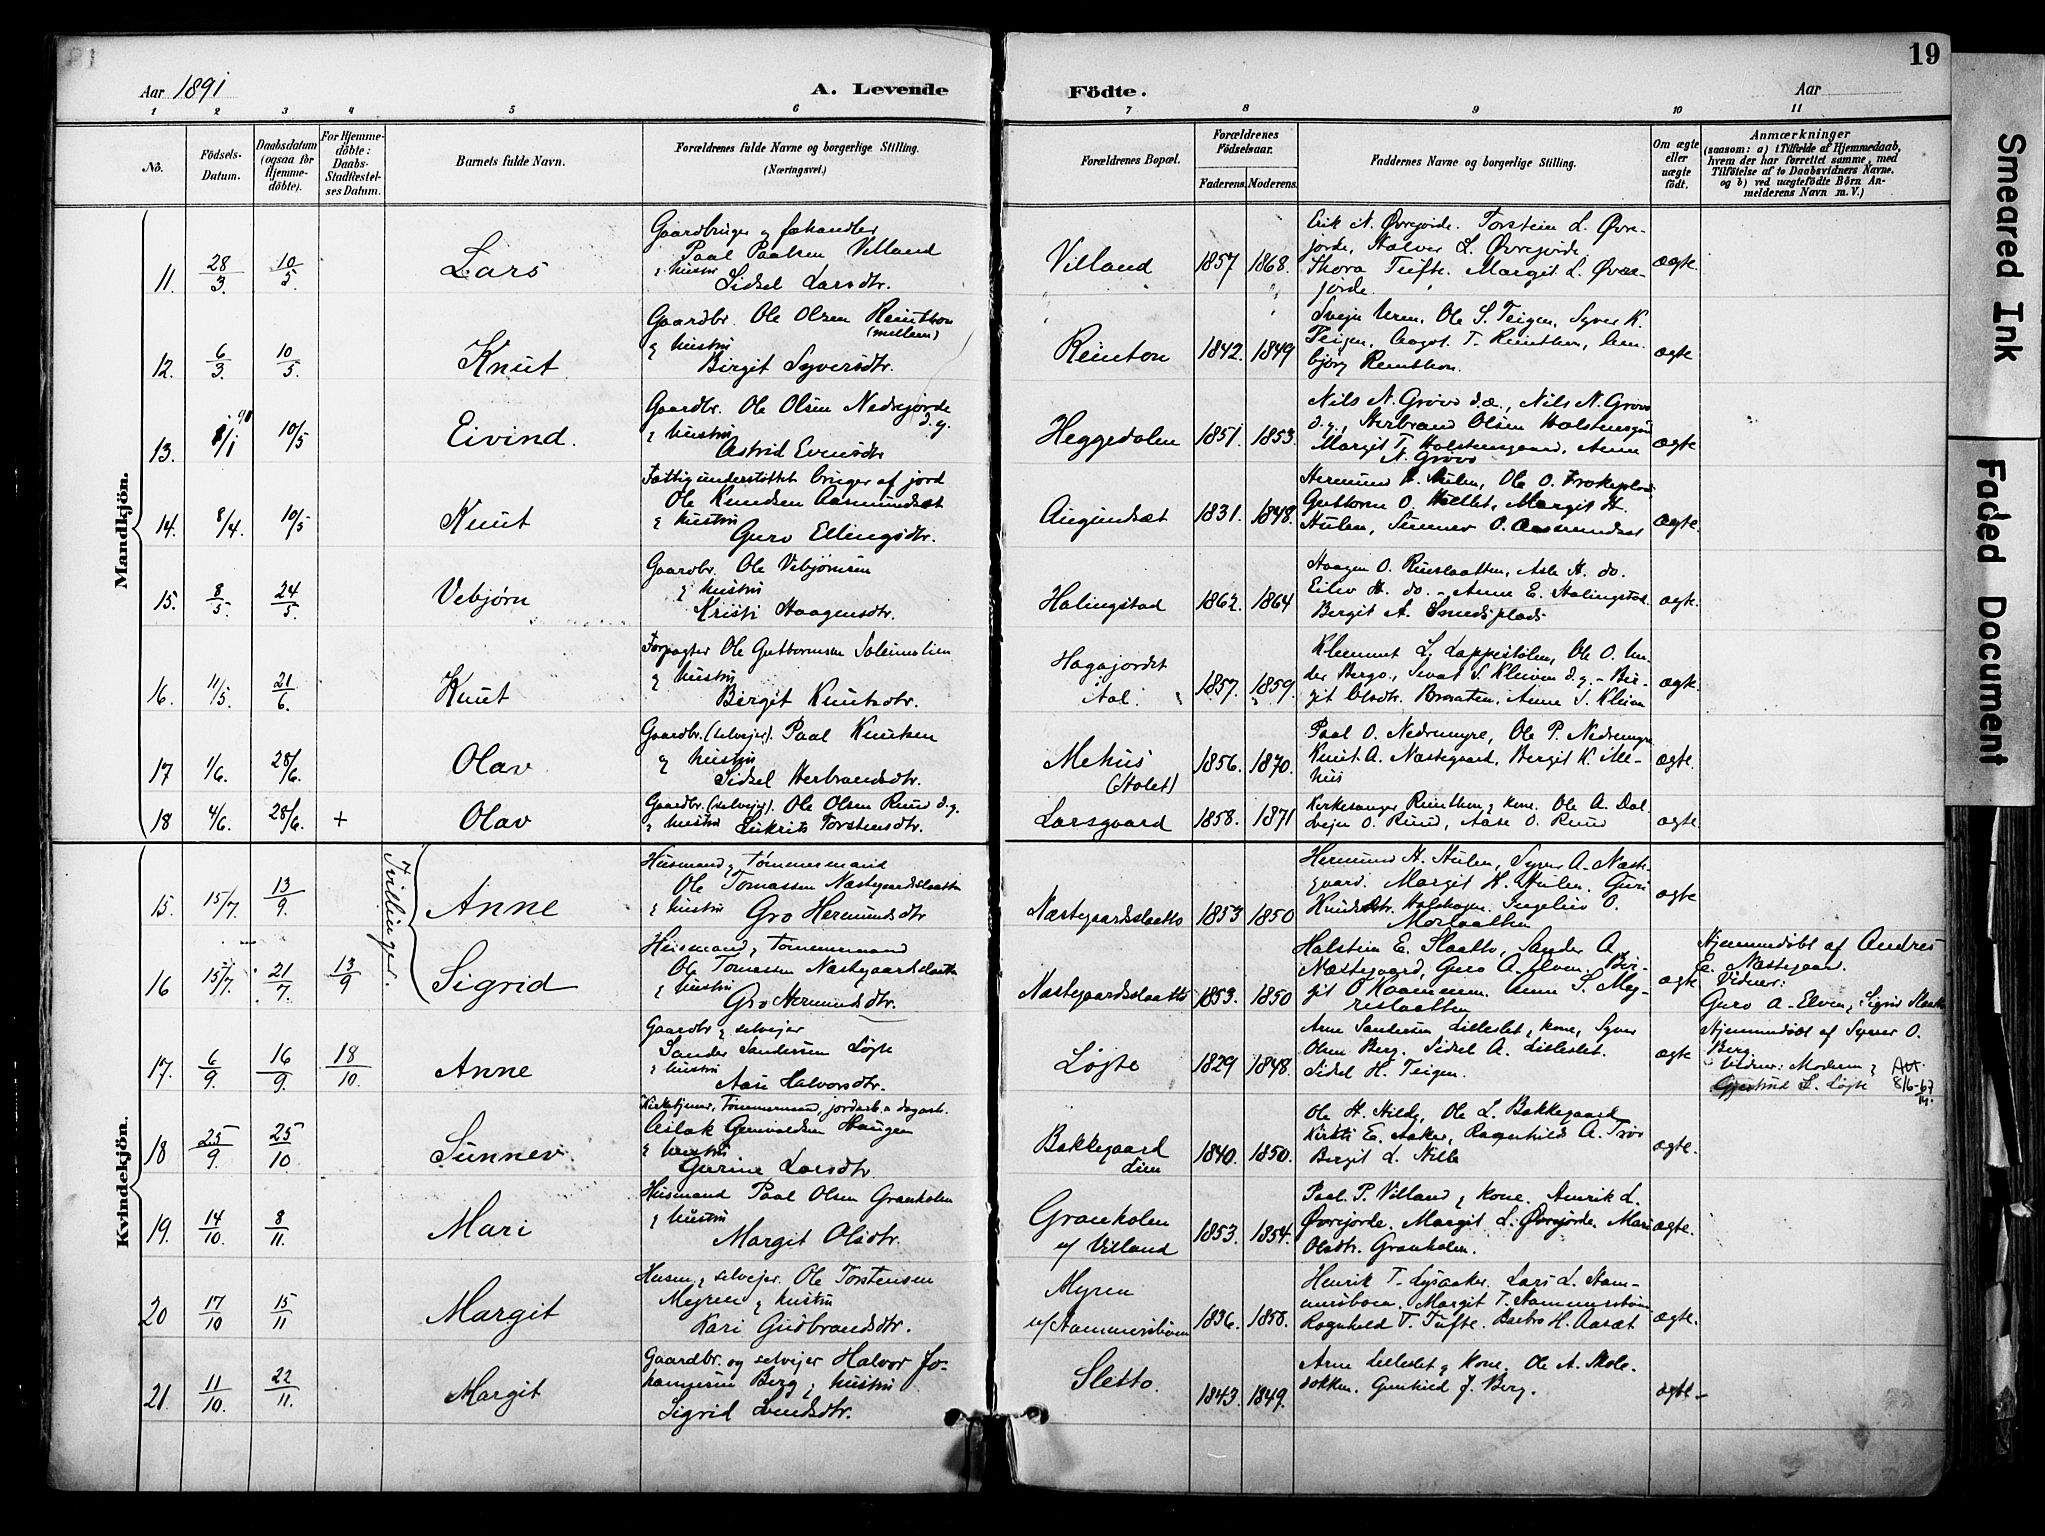 19
Aar 1891
A. Levende
Födte.
Aar
1 2 3 4 5 6 7 8 9 10 11
No.
Födsels-Datum.
Daabsdatum (ogsaa for Hjemmedöbte).
For Hjemmedöbte: Daabs-Stadfæstelses Datum.
Barnets fulde Navn.
Forældrenes fulde Navne og borgerlige Stilling. (Næringsvei.)
Forældrenes Bopæl.
Forældrenes Födselsaar.
Faderens. Moderens.
Faddernes Navne og borgerlige Stilling.
Om ægte eller uægte födt.
Anmærkninger
(saasom: a) i Tilfælde af Hjemmedaab,
hvem der har forrettet samme, med
Tilföielse af to Daabsvidners Navne,
og b) ved uægtefödte Börn Anmelderens Navn m. V.)
Mandkjön.
11. 28/3. 10/5 Lars
Gaardbruger og fæhandler
Paal Paalsen Villand
& hustru
Sidsel Larsdtr.
Villand 1857 1868.
Erik N. Øvrejorde. Torstein L. Øvre-
jorde, Halvor L. Øvrejorde
Thora Tufte. Margit L. Øvre-
jorde.
ægte.
12. 6/3 10/5. Knut
Gaardbr. Ole Olsen Reinthon
(mellem)
& hustru
Birgit Syversdtr.
Reinton 1842. 1849
Svejn Uren, Ole S. Teigen, Syver K.
Teigen, Aagot T. Reinthon, Am-
bjørg Reinthon.
ægte
13. 10/5 Eivind.
Gaardbr. Ole Olsen Nedrejorde
d.y.
& hustru
Astrid Evensdtr
Heggedalen 1851. 1853.
Nils N. Grøvo d.æ., Nils N. Grøvo
d.y., Herbrand Olsen Holstensgård
Margit T. Holstensgaard, Anne
N. Grøvo
ægte
14. 8/4. 10/5 Knut
Fattigunderstøttet bruger af jord
Ole Knudsen Aasmundsæt
& hustru
Guro Ellingsdtr.
Augundsæt 1831. 1848.
Hermund Hulen, Ole O.
Guttorm O. Hællet, Margit H.
Hulen, Sunnev O. Aasmundsæt
ægte.
15. 8/5 24/5. Vebjørn
Gaardbr. Ole Vebjørnsen
& hustru
Kristi Haagensdtr.
Halingstad 1862. 1864
Haagen O. Ruuslaatten, Asle H. do.
Eilev H. do. - Anne E. Halingstad
Bergit A. Smedsplads
ægte.
16. 11/5. 21/6. Knut
Forpagter Ole Guttormsen Soleimslien
& hustru
Birgit Knutsdtr.
Hagajordet
i Aal. 1857. 1859.
Klemmet L. Lappestølen, Ole O. Un-
der Bergo, Sevat S. Kleiven d.y. - Bir-
git Olsdtr. Braaten, Anne S. Kleiven
ægte.
17 1/6. 28/6. Olav
Gaardbr. (selvejer). Paal Knutsen
& hustru
Sidsel Herbrandsdtr.
Mehus
(Holet) 1856. 1870.
Paal O. Nedremyre, Ole P. Nedremyre
Knut A. Næstegaard, Bergit K. Me-
hus
ægte.
18 4/6. 28/6. + Olav
Gaardbr. (selvejer). Ole Olsen Ruud d.y.
& hustru Torstensdtr.
Larsgaard 1858. 1871
Kirkesanger Reinthon & kone. Ole A. Dal
Svejn O. Ruud, Aase O. Ruud
ægte.
Kvindekjön.
Tvillinger.
15. 15/7. 13/9. Anne
Husmand & Tømmermand
Ole Tomassen Næstegaardslaatten
& hustru
Gro Hermundsdtr
Næstegaardsslaatto 1853 1850
Hermund H. Hulen, Syver A. Næste-
gaard. Margit H. Hulen. Guri
Knudsdtr. Halshagen. Ingeliv O.
ægte
16 15/7. 21/7. 13/9 Sigrid
Husmand & Tømmermand
Ole Tomassen Næstegaardslaatten
& hustru
Gro Hermundsdtr.
Næstegaardsslaatto 1853. 1850
Halstein E. Slaatto, Sander A.
Næstegaard, Guro A. Elven. Bir-
git O. Anne S. Mey-
rislaatten
ægte
Hjemmedøbt af Andres
E. Næstegaar.
Vidner:
Guro A. Elven, Sigrid
17. 6/9. 16/9. 18/10. Anne
Gaardbr & selvejer
Sander Sandersen Løjte
& hustru
Aase Halvorsdtr.
Løjte 1829 1848.
Arne Sandersen Lilleslet, kone, Syver
Olsen Berg. Sidsel A. Lilleslet.
Sidsel H. Teigen.
ægte
Hjemmedøbt af Syver O.
Berg.
Vidner: Moderen &
Gjertrud S. Løjte
8/6-67
18 25/9. 25/10 Sunnev.
Kirketjener, Tømmermand, jordarb. & dagarb.
Aslak Gunvaldsen Haugen
& hustru
Gurine Larsdtr.
Bakkegaard
Lien 1840. 1850.
Ole H. Hilde, Ole L. Bakkegaard
Kirsti E. Aaker, Ragnhild A. Trøo
Bergit L. Hille
ægte.
19. 14/10. 8/11. Mari
Husmand Paal Olsen Granholen
& hustru
Margit Olsdtr.
Granholen
u/ Villand 1853. 1854.
Paal P. Villand & kone. Amrik L.
Øvrejorde. Margit L. Øvrejorde, Mari
Olsdtr. Granholen.
ægte.
20 17/10 15/11 Margit
Husm. & selvejer. Ole Torstensen
Myren & hustru
Kari Gudbrandsdtr.
Myren
u/ Hammersbøen 1836. 1858.
Henrik T. Lysaaker. Lars L. Ham-
mersboen. Margit T. Hammersbøen
Ragnhild T. Tufte. Barbro H. Aasæt
ægte.
21. 11/10. 22/11. Margit
Gaardbr. og selvejer Halvor Jo-
hannesen Berg & hustru
Sigrid Svendsdtr.
Sletto. 1843. 1849.
Arne Lilleslet & kone. Ole A. Mole-
dokken. Gunhild J. Berg.
ægte
Smeared Ink
Faded Document